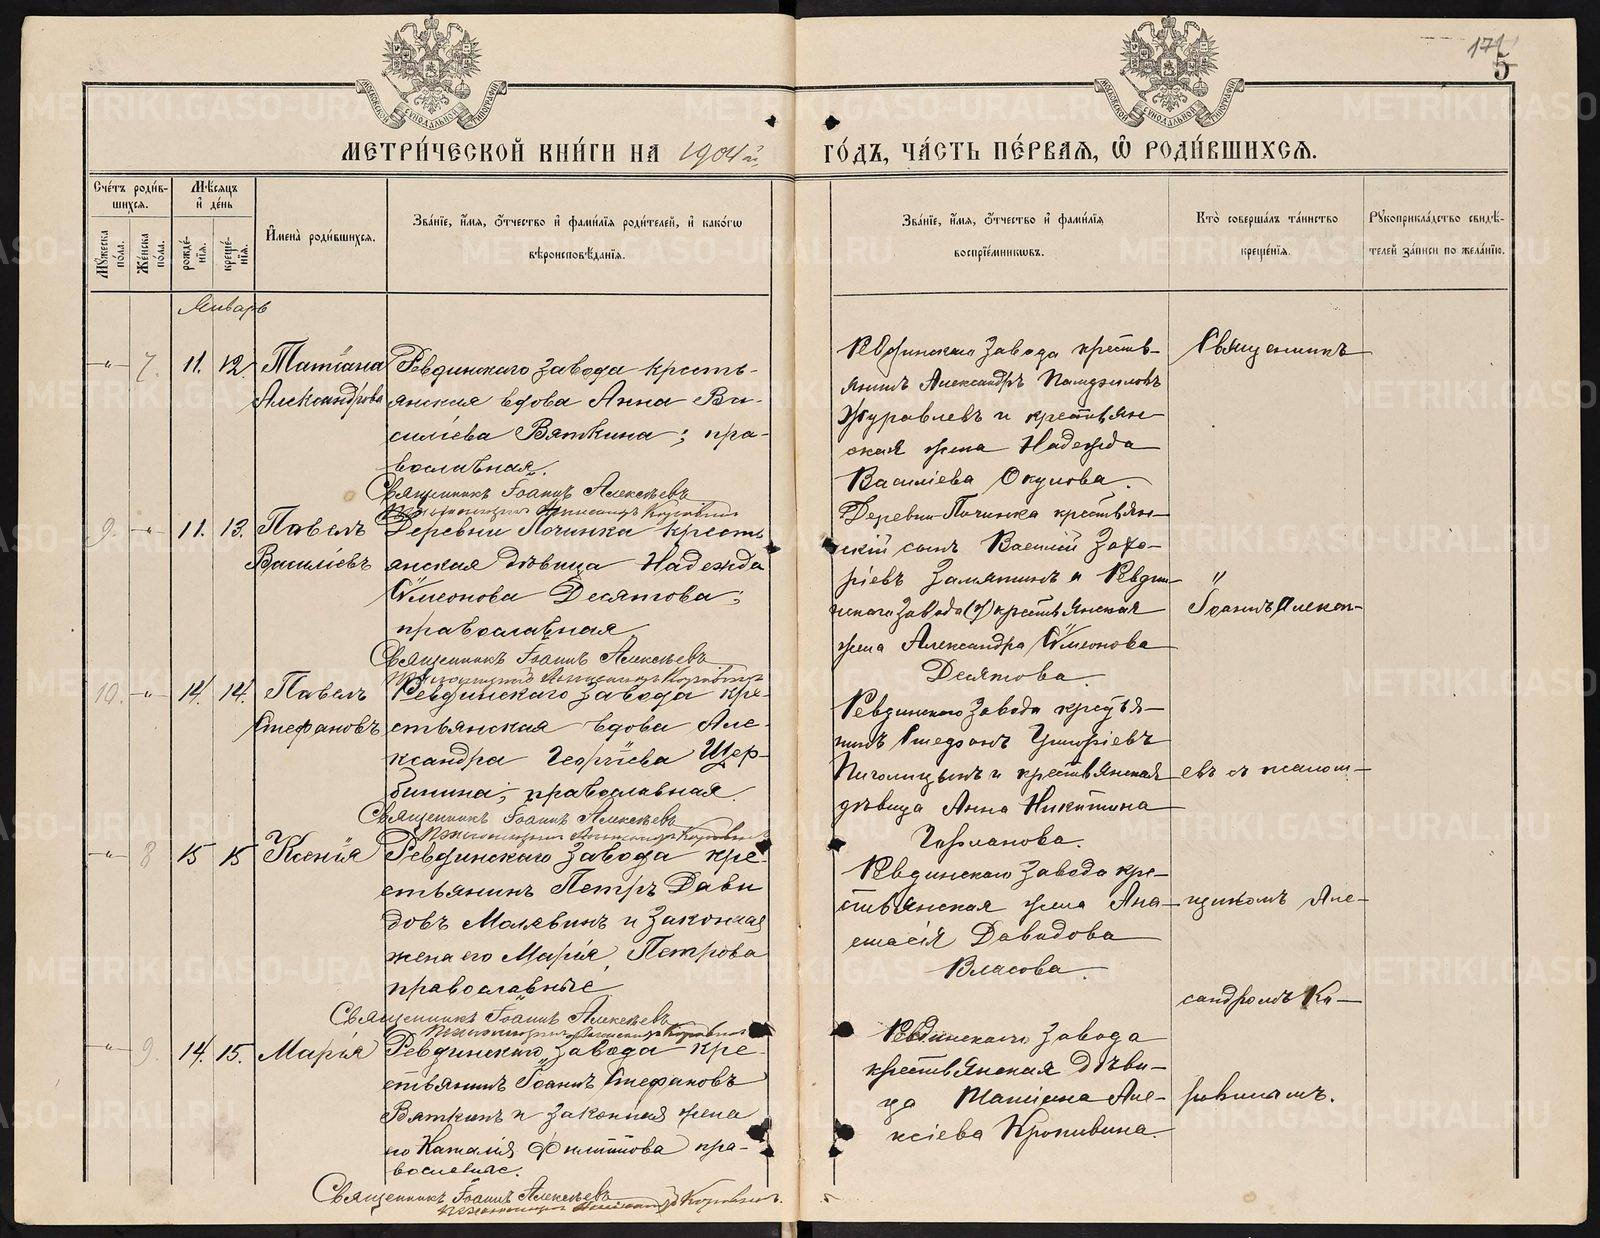 171
5
МЕТРИ́ЧЕСКОЙ КНИ́ГИ НА 1904й
ГО́ДЪ, ЧА́СТЬ ПЕ́РВАЯ, Ѡ РОДИ́ВШИХСЯ.
Сче́тъ роди́в-
шихся.
Му́жеска по́ла.
Же́нска по́ла.
Мѣ́сяцъ и де́нь
рожде́-
нїя.
креще́-
нїя.
Имена̀ роди́вшихся.
Зва́нїе, и́мя, ѻ́тчество и фами́лїя роди́телей, и како́гѡ
вѣроисповѣ́данїя.
Зва́нїе, и́мя, ѻ́тчество и фами́лїя
воспрїе́мникѡвъ.
Кто̀ соверша́лъ та́инство
креще́нїя.
Рукоприкла́дство свидѣ́-
телей за́писи по жела́нїю.
Январь
-"- 7. 11. 12. Татіана
Александрова
Ревдинскаго завода кресть-
янская вдова Анна Ва-
силіева Вяткина; пра-
вославная.
Священникъ Іоаннъ Алексѣевъ
Ревдинскаго завода кресть-
янинъ Александръ
Журавлевъ и крестьян-
ская жена Надежда
Василіева Окулова.
Священникъ
9. -"- 11. 13. Павелъ
Василіевъ
Деревни Починка кресть-
янская дѣвица Надежда
Сѵмеонова Десятова;
православная
Священникъ Іоаннъ Алексѣевъ
Деревни Починка крестьян-
скій сынъ Василій Заха-
ріевъ Замятинъ и Ревдин-
скаго завода крестьянская
жена Александра Сѵмеонова
Десятова.
"
Іоаннъ Алексѣ-
10. -"- 14. 14. Павелъ
Стефановъ
Ревдинскаго завода кре-
стьянская вдова Але-
ксандра Георгіева Щер-
бинина; православная
Священникъ Іоаннъ Алексѣевъ
Ревдинскаго завода крестья-
нинъ Стефанъ Григоріевъ
Пиголицынъ и крестьянская
дѣвица Анна Никитина
евъ съ псалом-
-"- 8 15 15 Ксенія
Ревдинскаго завода кре-
стьянинъ Петръ Дави
довъ Малявинъ и законная
жена его Марія Петрова
православные
Священникъ Іоаннъ Алексѣевъ
Ревдинскаго завода кре-
стьянская жена Ана-
стасія Давидова
Власова.
щикомъ Але-
ксандромъ Ко-
-"- 9. 14. 15. Марія
Ревдинскаго завода кре-
стьянинъ Іоаннъ Стефановъ
Вяткинъ и законная жена
его Наталія Филиппова пра-
вославные.
Священникъ Іоаннъ Алексѣевъ
Ревдинскаго завода
крестьянская дѣви-
ца Татіана Але-
ксіева Кропивина.
ровинамъ.